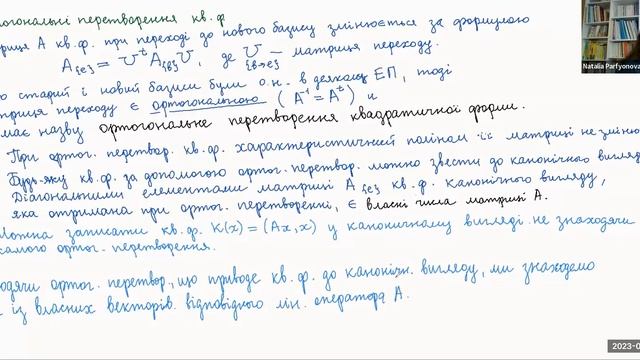 гональні перетворення кв. ф
риця А кв. ф. при переході до нового базису змінюється за формулою
A{e} = U^t A{б} U, де U{б→e} – матриця переходу.
о старий і новий базиси були о.н. в деякому ЕП, тоді
триця переходу є ортогональною (A^-1 = A^t) и
має назву ортогональне перетворення квадратичної форми.
При ортог. перетвор. кв. ф. характеристичний поліном її матриці не зміню
Будь-яку кв. ф. за допомогою ортог. перетвор. можно звести до канонічного вигляд
Діагональними елементами матриці A{e} кв. ф. канонічного вигляду,
яка отримана при ортог. перетворенні, є власні числа матриці А.
ожна записати кв. ф. K(x) = (Ax, x) у каноничному вигляді не знаходячи
самого ортог. перетворення.
одячи ортог. перетвор., що приводе кв. ф. до каноніч. вигляду, ми знаходемо
із власних векторів відповідного лін. оператора А.
Natalia Parfyonova
2023-0